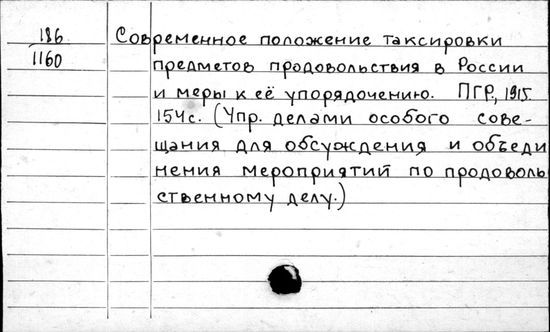 186
1160
Современное положение таксировки
предметов продовольствия в России
и меры к её упорядочению. ПГР., 1915.
154с. (Упр. делами особого сове-
щания для обсуждения и объеди
нения мероприятий по продоволь
ственному делу.)